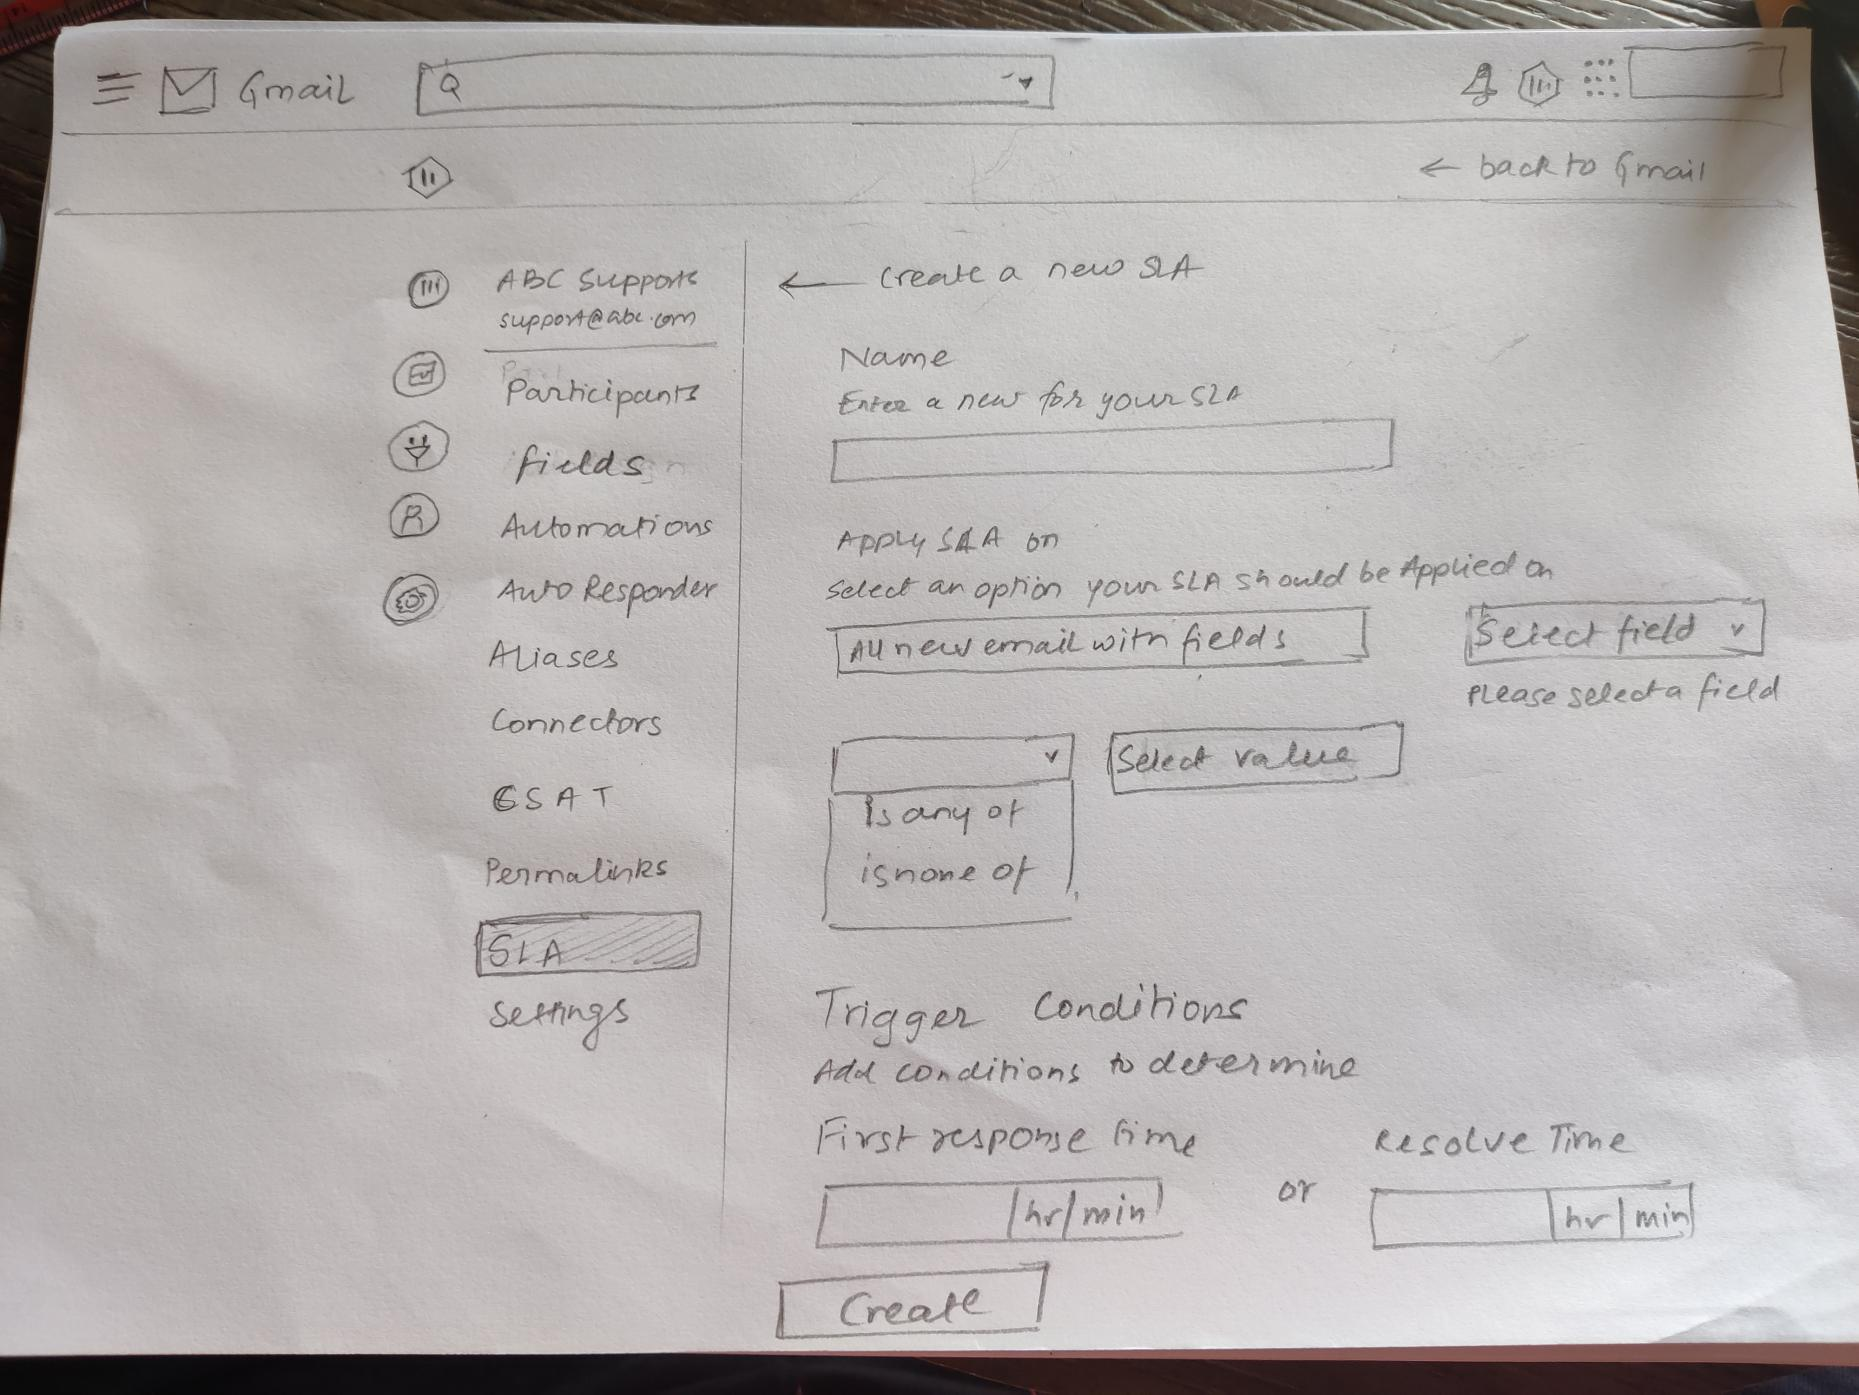 Gmail
Q
← back to Gmail
ABC Supports
support@abc.com
Participants
fields
Automations
Auto Responder
Aliases
Connectors
CSAT
Permalinks
SLA
Settings
← Create a new SLA
Name
Enter a new for your SLA
Apply SLA on
Select an option your SLA should be Applied on
All new email with fields
Select field
Please select a field
Select value
Is any of
is none of
Trigger Conditions
Add conditions to determine
First response time
hr/min
or
Resolve Time
hr|min
Create